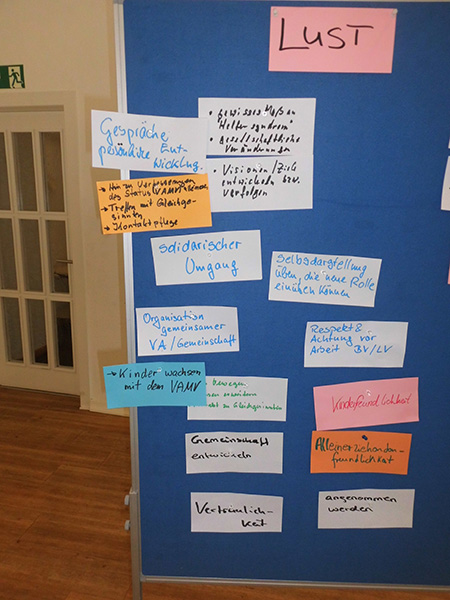 LUST
Gespräche
persönliche Ent-
wicklung.
• Gewisses Maß an
"Helfersyndrom"
• Gesellschaftliche
Veränderungen
• Visionen / Ziele
entwickeln bzw.
verfolgen
→ Hin zu
des Status VAMV
→ Treffen mit Gleichge-
sinnten
→ Kontaktpflege
solidarischer
Umgang
Selbsdarstellung
üben, die neue Rolle
einüben können
Organisation
gemeinsamer
VA / Gemeinschaft
Respekt &
Achtung vor
Arbeit BV/LV
→ Kinder wachsen
mit dem VAMV
bewegen
erweitern
zu Gleichgesinnten
Kinderfreundlichkeit
Gemeinschaft
entwickeln
Alleinerziehenden-
freundlichkeit
Vertraulich-
keit
angenommen
werden